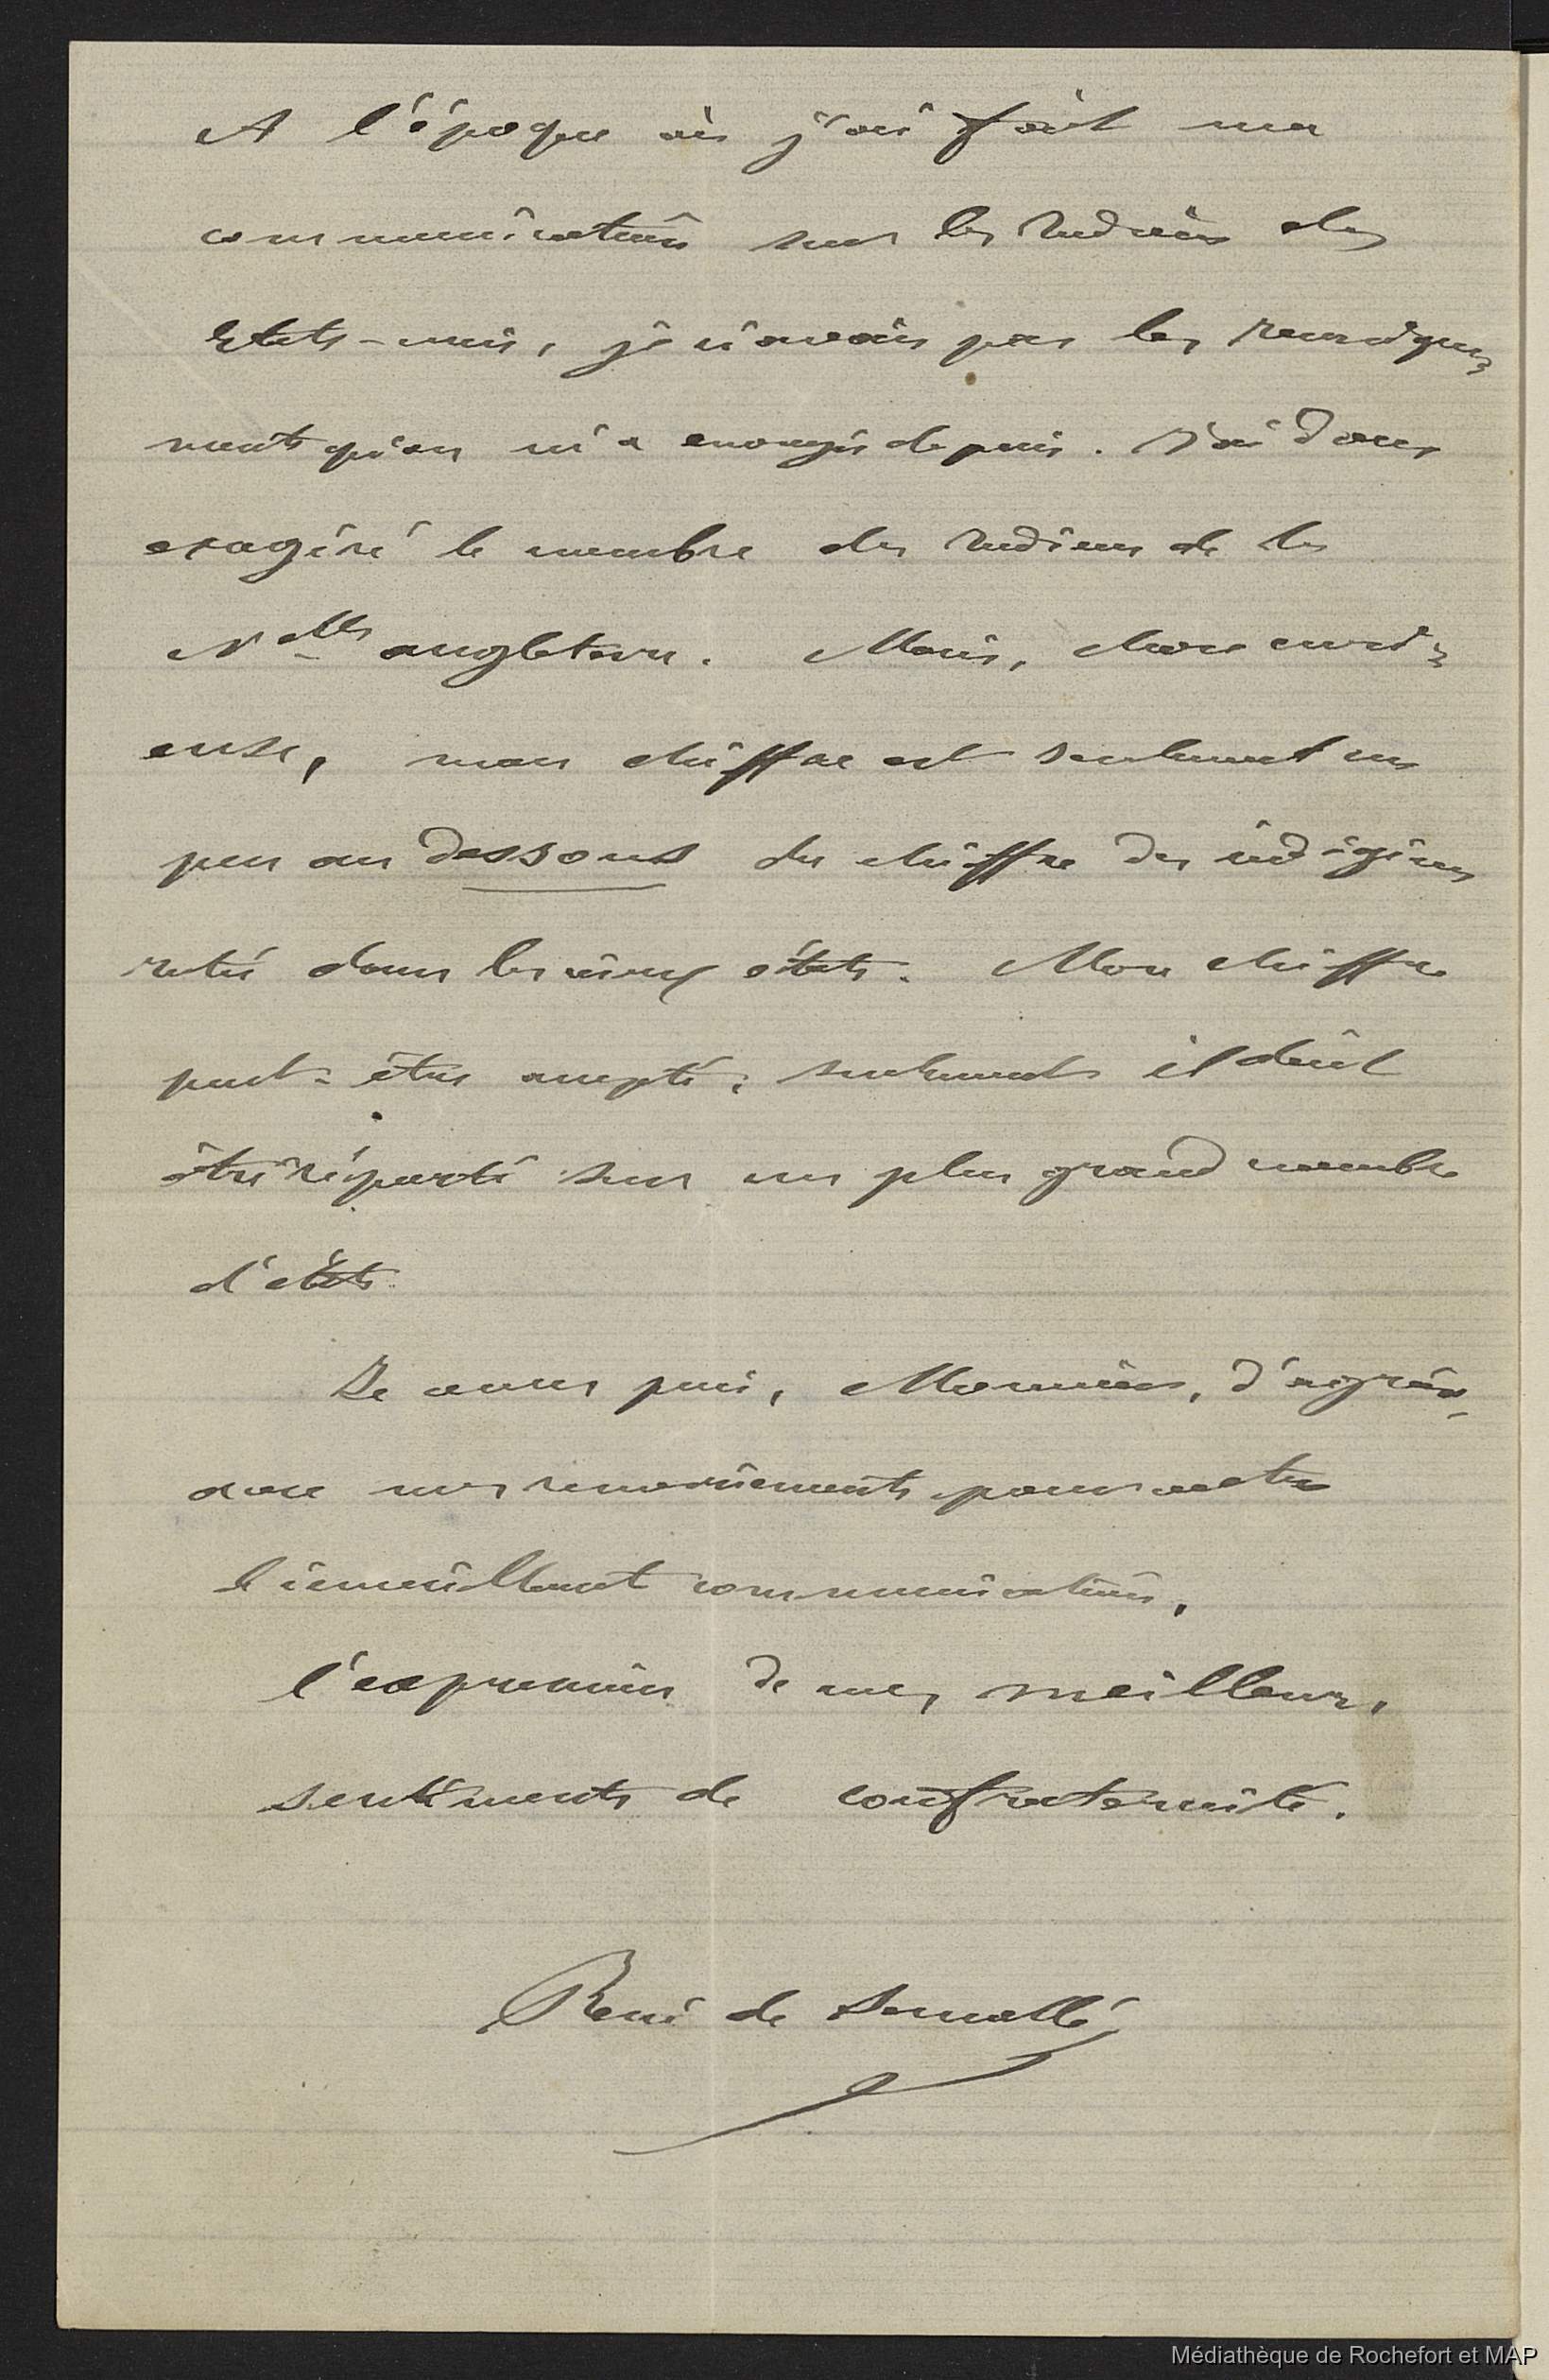 A l'époque où j'ai fait ma
communication sur les Indiens des
Etats-unis, je n'avais pas les renseigne-
ments qu'on m'a envoyés depuis. J'ai donc
exagéré le nombre des Indiens de la
Nlle angleterre. Mais, chose curi-
euse, mon chiffre est seulement un
peu au dessous du chiffre des indigènes
restés dans les vieux états. Mon chiffre
peut-être accepté; seulement il doit
être réparti sur un plus grand nombre
d'états.
Je vous prie, Monsieur, d'agréer
avec mes remerciements pour votre
bienveillante communication,
l'expression de mes meilleurs
sentiments de confraternité.
René de Semallé
Médiathèque de Rochefort et MAP